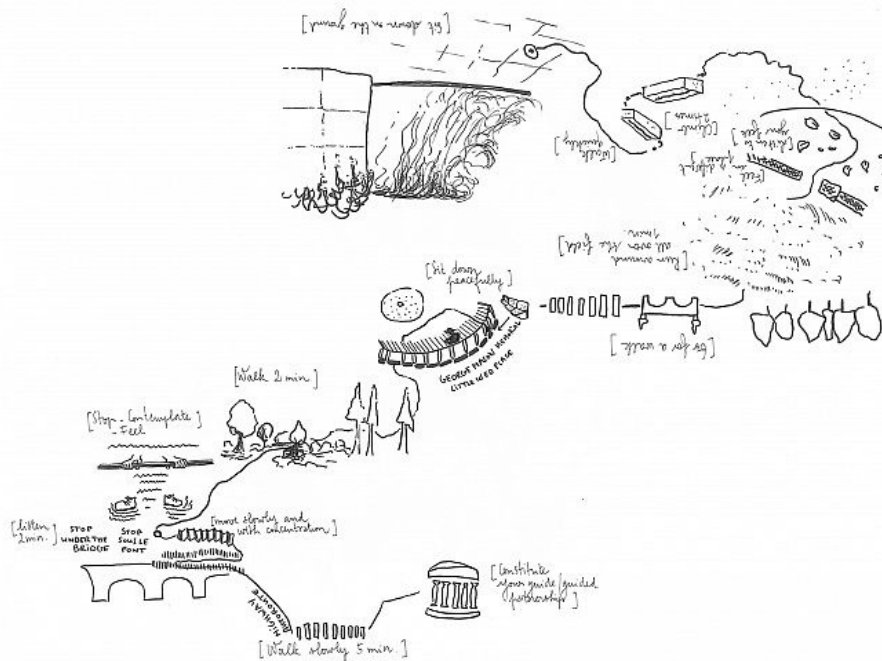 [Sit down on the ground]
[Walk
quickly]
[Climb
2 times]
[Listen to
your feet]
[Feel
in different
place]
[Run around
all over the field]
1 min.
[Sit down
peacefully]
[Go for a walk]
GEORGE MASON MEMORIAL
LITTLE WEB PLACE
[Walk 2 min.]
[Stop - Contemplate]
- Feel
[listen
2 min.]
STOP
UNDER THE
BRIDGE
STOP
SOUS LE
PONT
[move slowly and
with concentration]
HIGHWAY
AUTOROUTE
[Walk slowly 5 min.]
[Constitute
your guide/guided
partnership]